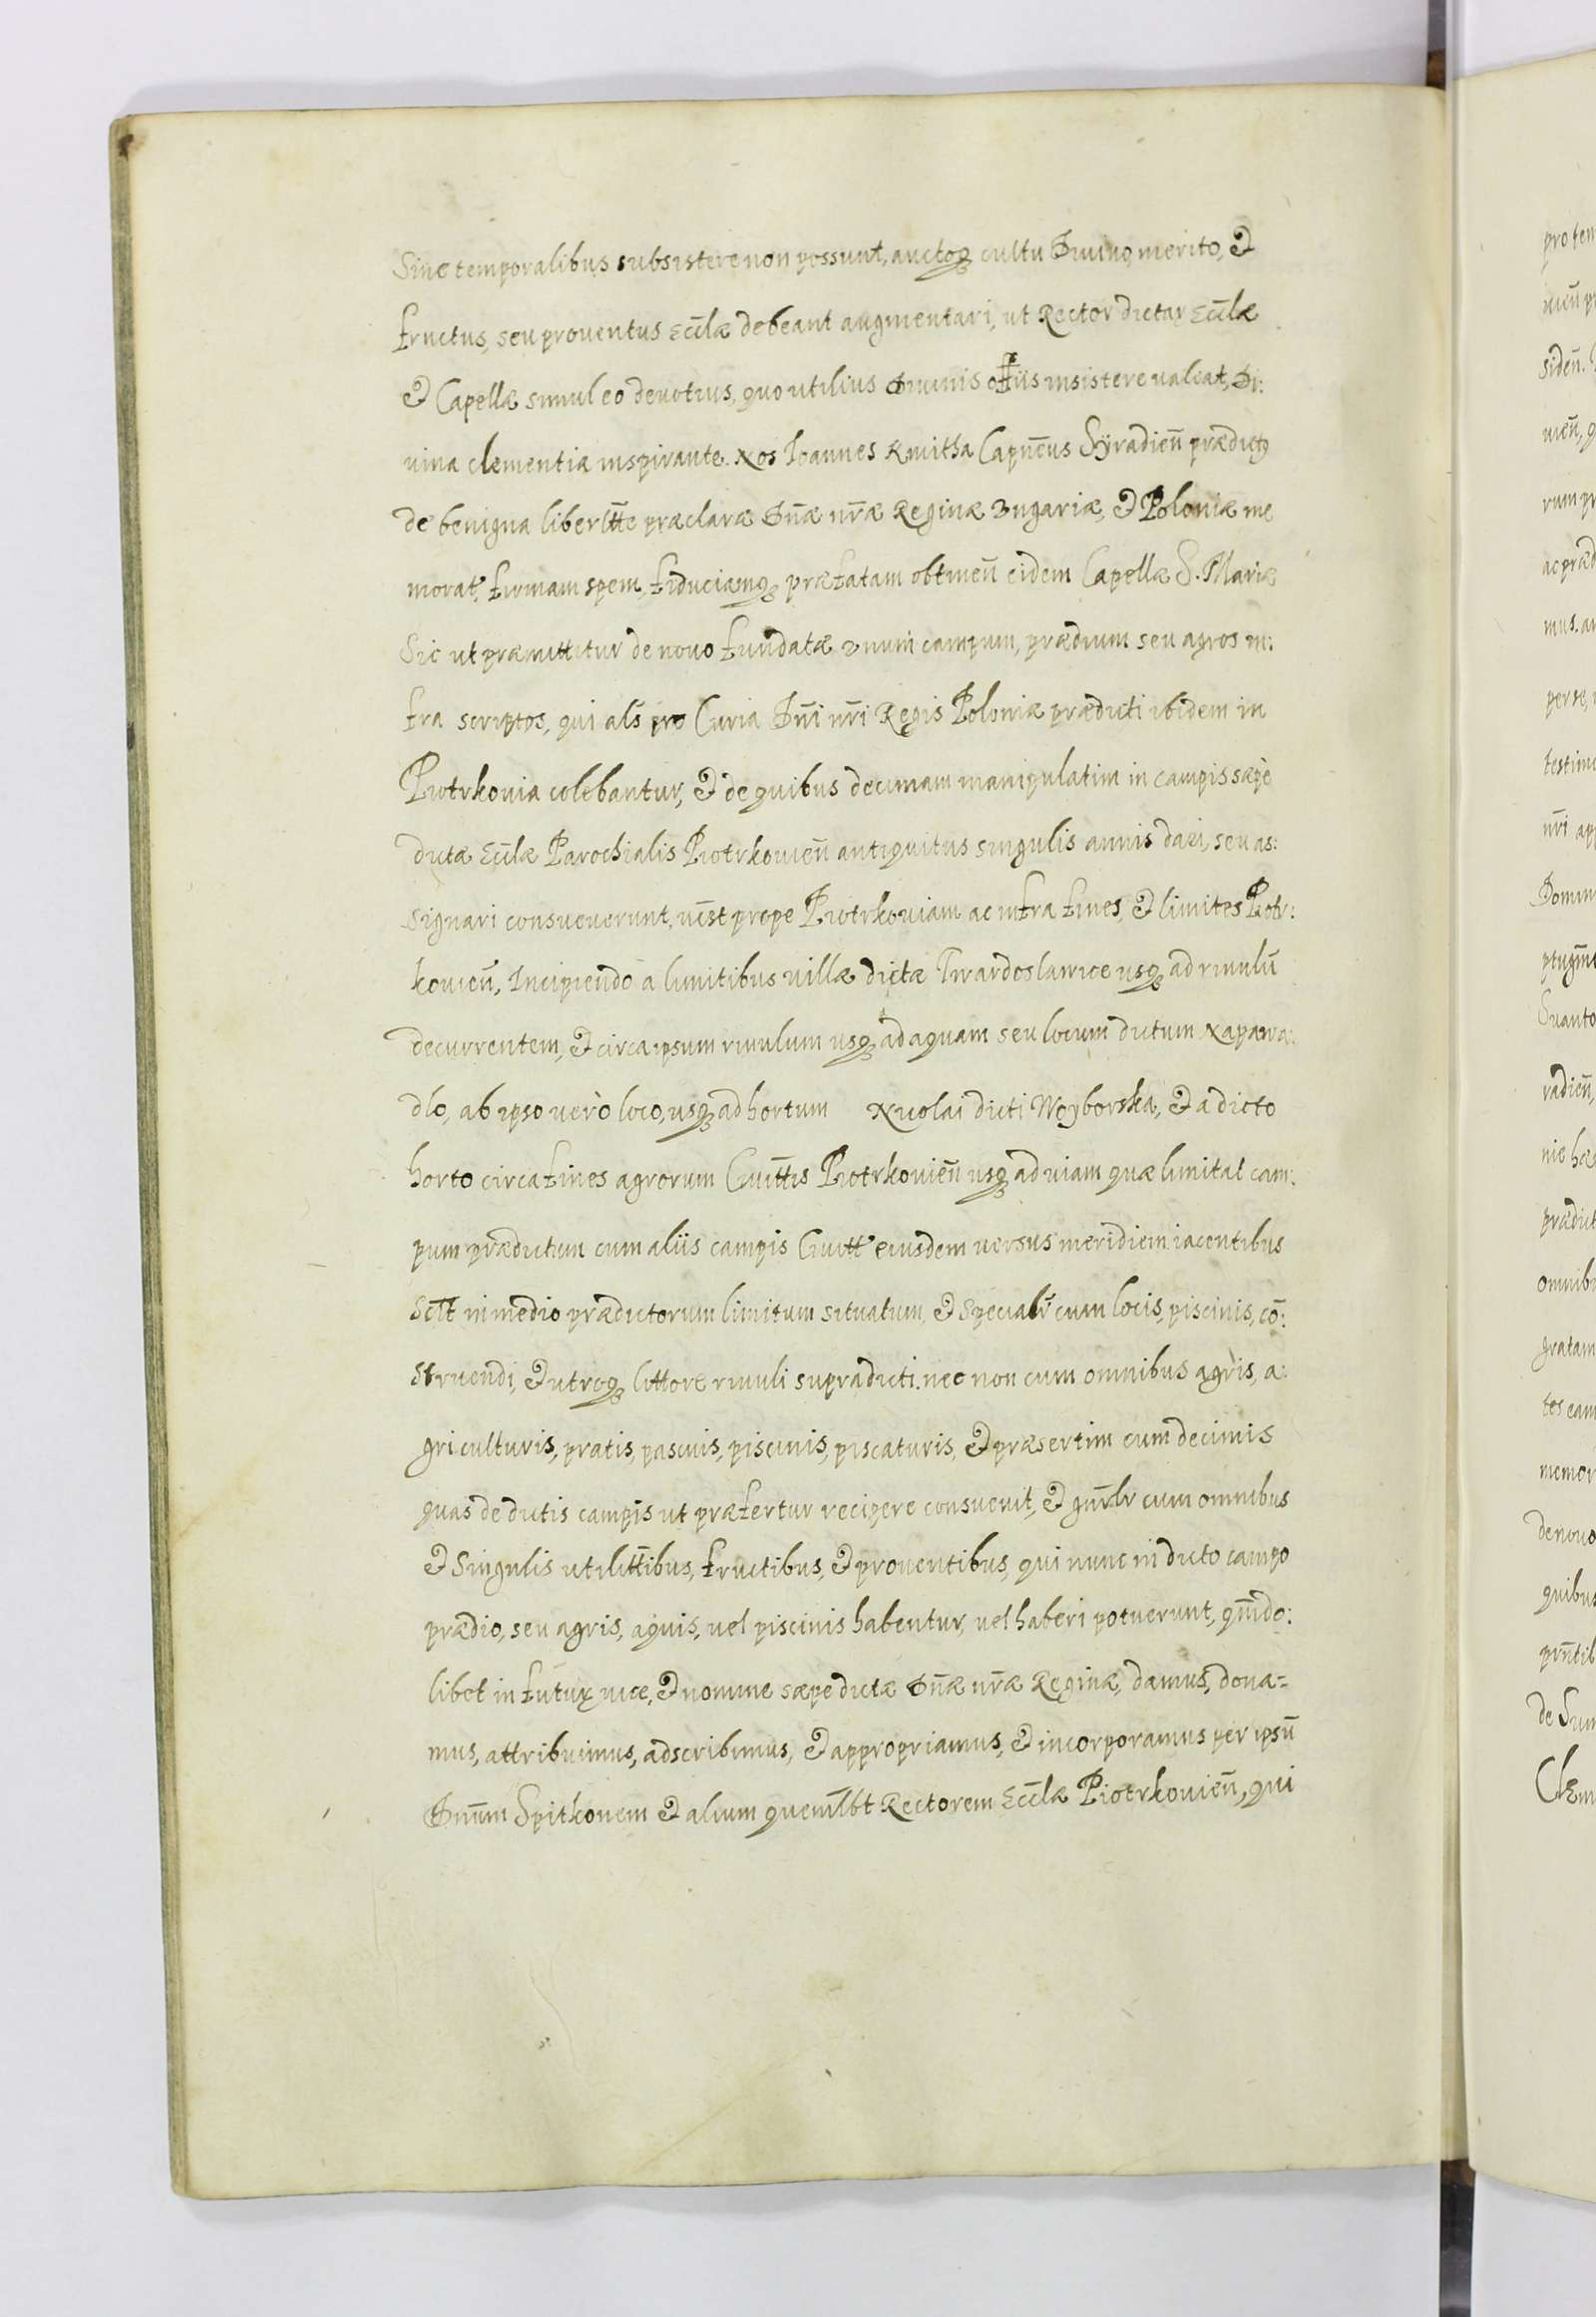 Sine temporalibus subsistere non possunt, auctoq̃ cultu Diuino, merito, et
fructus, seu prouentus Eccl̃æ debeant augmentari, ut Rector dictar Eccl̃æ
et Capellæ simul eo deuotius, quo utilius Diuinis offiis insistere ualeat, Di:
uina clementia inspirante. Nos Ioannes Kmitha Capñeus Syradieñ prædictꝰ
de benigna libertt̃e præclaræ Dñæ nr̃æ Reginæ Vngariæ, et Poloniæ me
morat, firmam spem, fiduciamq̃ præfatam obtineñ eidem Capellæ S. Mariæ
Sic ut præmittitur de nouo fundatæ Vnum campum, prædium seu agros in:
fra scriptos, qui als̃ pro Curia Dñi nr̃i Regis Poloniæ prædicti ibidem in
Piotrkouia colebantur, et de quibus decimam manipulatim in campis sæpe
dictæ Eccl̃æ Parochialis Piotrkouieñ antiquitus singulis annis dari, seu as:
signari consueuerunt, uist prope Piotrkouiam ac infra fines, et limites Piotr:
kouieñ, Incipiendo a limitibus uillæ dictæ Twardoslawice usq̃ ad riuulũ
decurrentem, et circa ipsum riuulum usq̃ ad aquam seu locum dictum Napawa:
dlo, ab ipso uerò loco, usq̃ ad hortum Nicolai dicti Woyborska, et a dicto
horto circa fines agrorum Ciuitt̃is Piotrkouieñ usq̃ ad uiam quæ limitat cam:
pum prædictum cum aliis campis Ciuitt eiusdem uersus meridiem iacentibus
Scil̃t in medio prædictorum limitum situatum, et Specialr̃ cum locis, piscinis, cõ:
struendi, et utroq̃ littore riuuli supradicti. nec non cum omnibus agris, a:
griculturis, pratis, pascuis, piscinis, piscaturis, et præsertim cum decimis
quas de dictis campis ut præfertur recipere consueuit, et gnr̃lr cum omnibus
et Singulis utilitt̃ibus, fructibus, et prouentibus, qui nunc in dicto campo
prædio, seu agris, aquis, uel piscinis habentur, uel haberi potuerunt, qm̃do:
libet in futuꝝ uice, et nomine sæpe dictæ Dñæ nr̃æ Reginæ, damus, dona=
mus, attribuimus, adscribimus, et appropriamus, et incorporamus per ipsũ
Dnũm Spitkonem et alium queml̃bt Rectorem Eccl̃æ Piotrkouieñ, qui